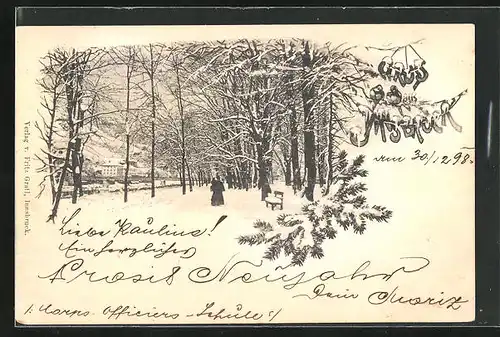 Gruss
aus
Innsbruck
am 30/12 98.
Verlag v. Fritz Gratl, Innsbruck.
Liebe Pauline!
Ein herzliches
Prosit Neujahr
Dein Moriz
/: Corps Officiers - Schule :/